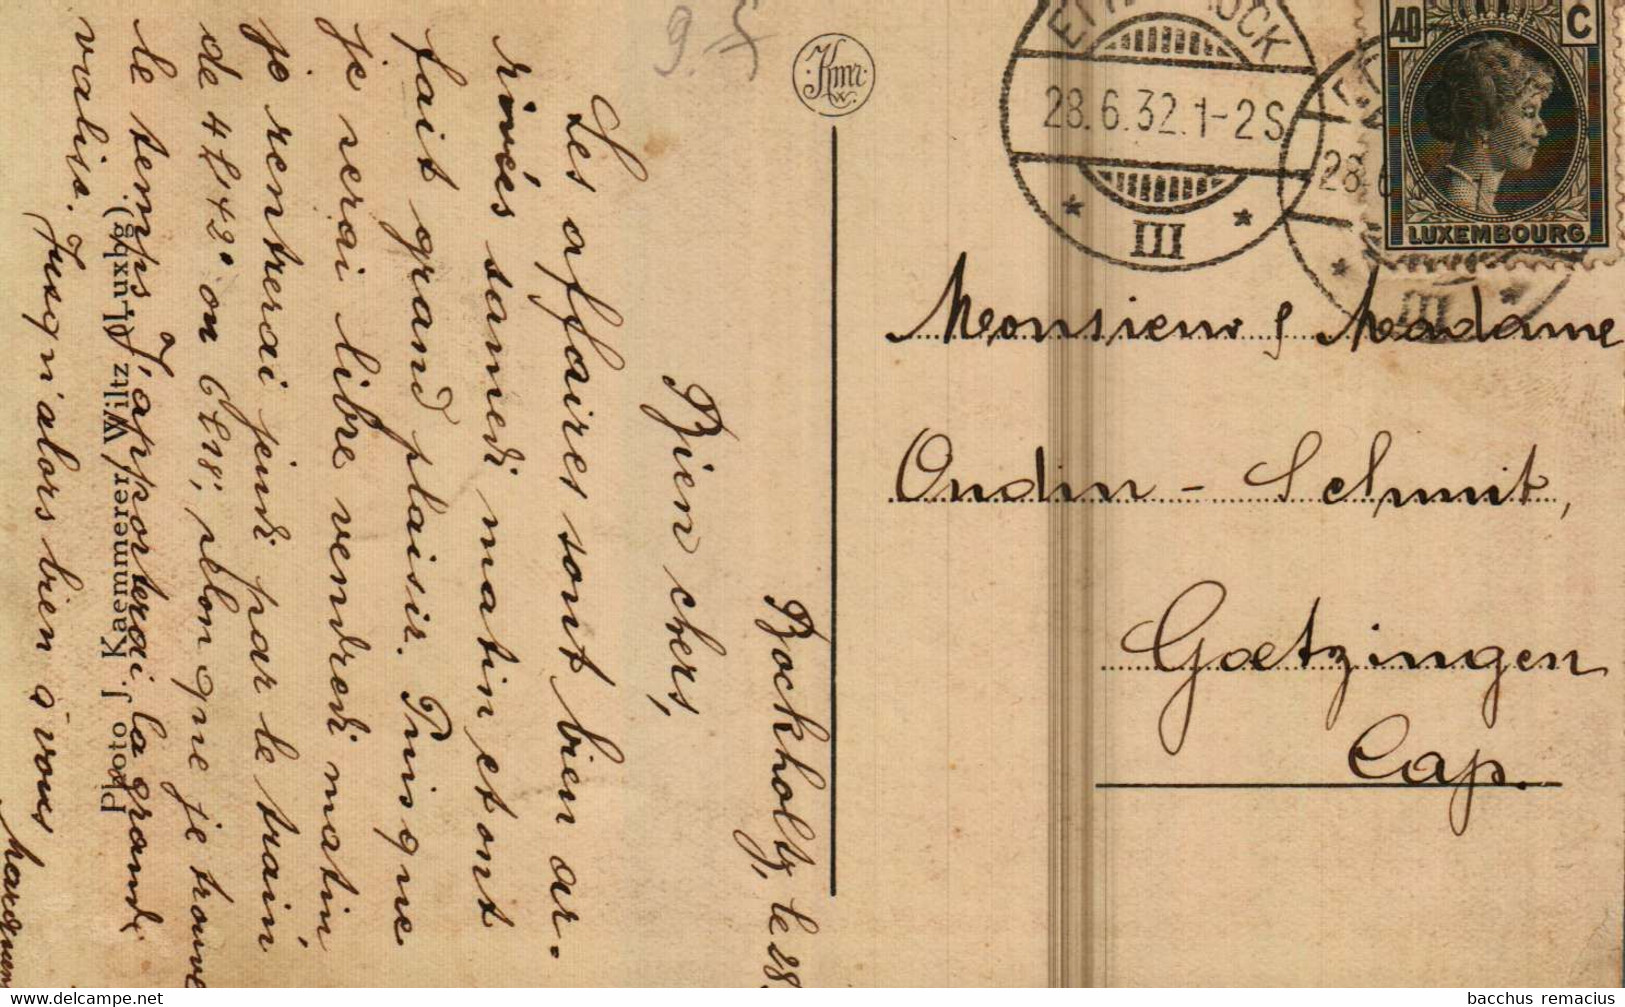 Bockholtz, le 28.
Bien chers,
Les affaires sont bien ar-
rivées samedi matin et ont
fait grand plaisir. Puisque
je serai libre vendredi matin
je rentrerai jeudi par le train
de 4h42° ou 6h18, selon que je trouve
le temps. J'apporterai la grande
valise. Jusqu'alors bien à vous
Photo J. Kaemmerer, Wiltz (G.-Luxbg.)
9.-
Kmr
W.
28.6.32.1-2S
III
28
III
40 C
LUXEMBOURG
Monsieur & Madame
Oudin - Schmit,
Goetzingen
Cap.
bacchus remacius